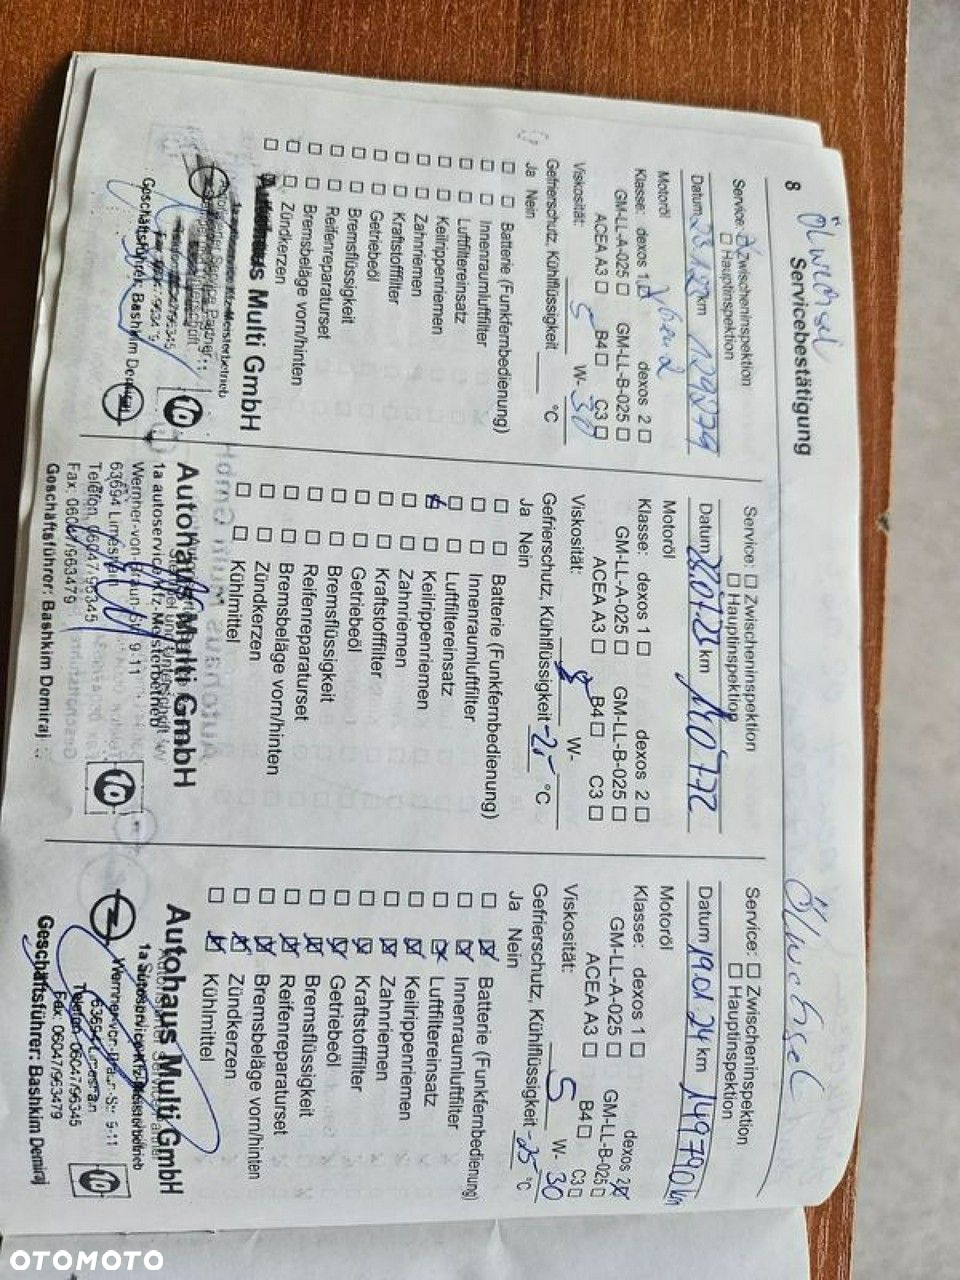 8
Ölwechsel
Servicebestätigung
Service: Zwischeninspektion
Hauptinspektion
Datum 23.1 km 129279
Motoröl
Klasse: dexos 1 dexos 2
GM-LL-A-025 GM-LL-B-025
ACEA A3 B4 C3
Viskosität: 5 W- 30
Gefrierschutz, Kühlflüssigkeit °C
Ja Nein
Batterie (Funkfernbedienung)
Innenraumluftfilter
Luftfiltereinsatz
Keilrippenriemen
Zahnriemen
Kraftstofffilter
Getriebeöl
Bremsflüssigkeit
Reifenreparaturset
Bremsbeläge vorn/hinten
Zündkerzen
Autohaus Multi GmbH
Geschäftsführer: Bashkim Demiraj
Service: Zwischeninspektion
Hauptinspektion
Datum km 140772
Motoröl
Klasse: dexos 1 dexos 2
GM-LL-A-025 GM-LL-B-025
ACEA A3 B4 C3
Viskosität: W-
Gefrierschutz, Kühlflüssigkeit °C
Ja Nein
Batterie (Funkfernbedienung)
Innenraumluftfilter
Luftfiltereinsatz
Keilrippenriemen
Zahnriemen
Kraftstofffilter
Getriebeöl
Bremsflüssigkeit
Reifenreparaturset
Bremsbeläge vorn/hinten
Zündkerzen
Kühlmittel
Autohaus Multi GmbH
1a autoservice Kfz-Meisterbetrieb
Wernner-von-Braun-Str. 9-11
63694 Limeshain
Telefon 06047/96345
Fax: 06047/963479
Geschäftsführer: Bashkim Demiraj
Ölwechsel
Service: Zwischeninspektion
Hauptinspektion
Datum 19.01.24 km 149790 km
Motoröl
Klasse: dexos 1 dexos 2
GM-LL-A-025 GM-LL-B-025
ACEA A3 B4 C3
Viskosität: 5 W- 30
Gefrierschutz, Kühlflüssigkeit -25 °C
Ja Nein
Batterie (Funkfernbedienung)
Innenraumluftfilter
Luftfiltereinsatz
Keilrippenriemen
Zahnriemen
Kraftstofffilter
Getriebeöl
Bremsflüssigkeit
Reifenreparaturset
Bremsbeläge vorn/hinten
Zündkerzen
Kühlmittel
Autohaus Multi GmbH
1a autoservice Kfz-Meisterbetrieb
Wernner-von-Braun-Str. 9-11
63694 Limeshain
Telefon 06047/96345
Fax: 06047/963479
Geschäftsführer: Bashkim Demiraj
OTOMOTO